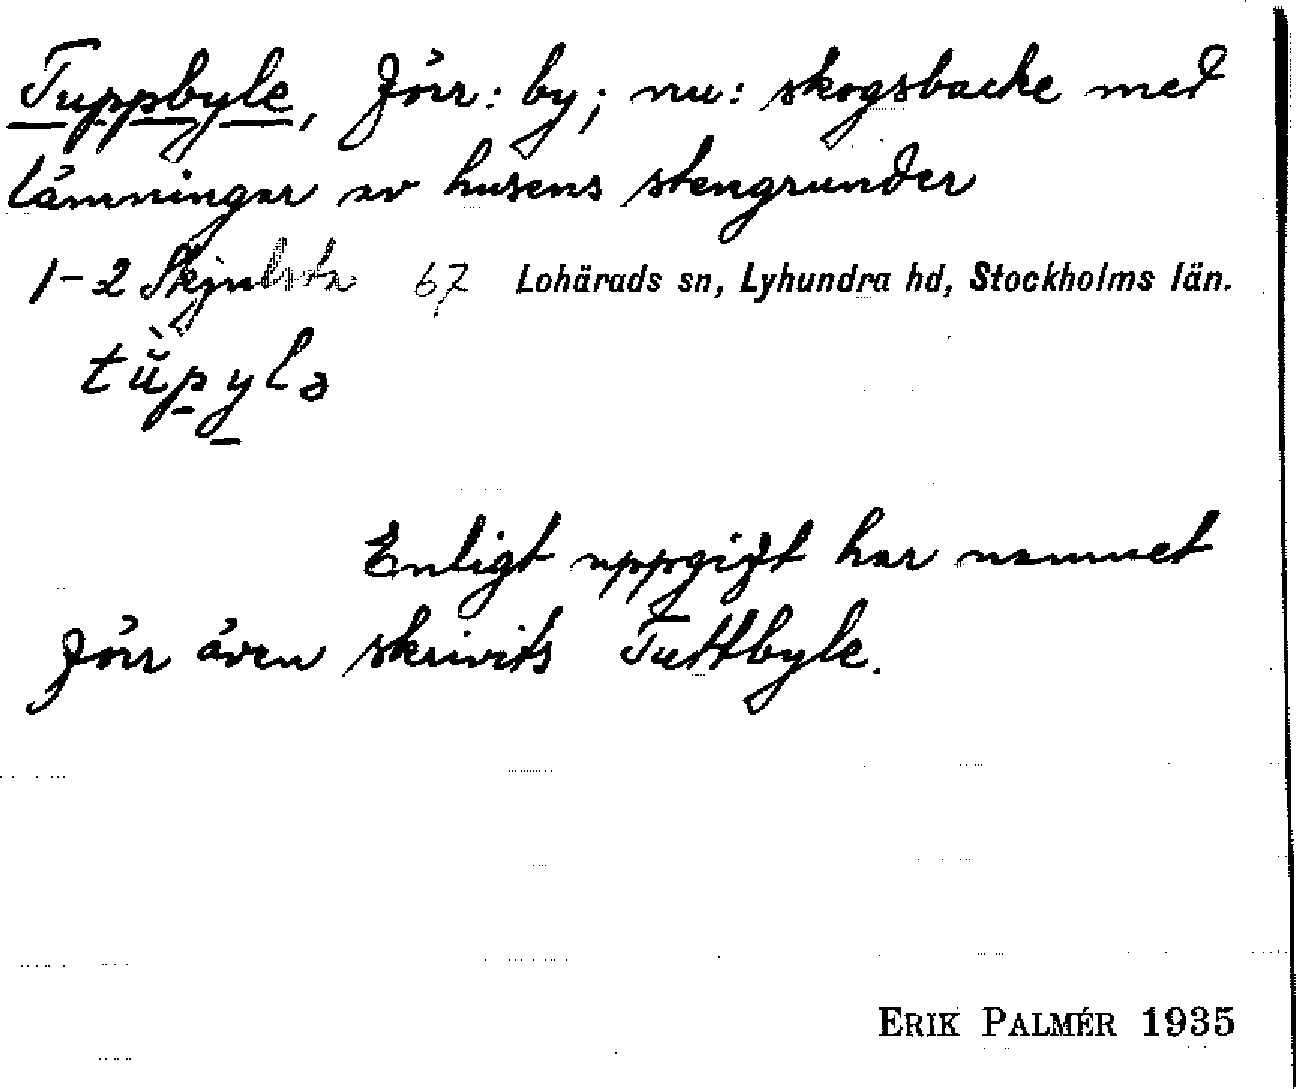 Tuppbyle, förr: by; nu: skogsbacke med
lämningar av husens stengrunder
1-2 Skjulsta 67 Lohärads sn, Lyhundra hd, Stockholms län.
tǜpylə
Enligt uppgift har namnet
förr även skrivits Tuttbyle.
ERIK PALMÉR 1935